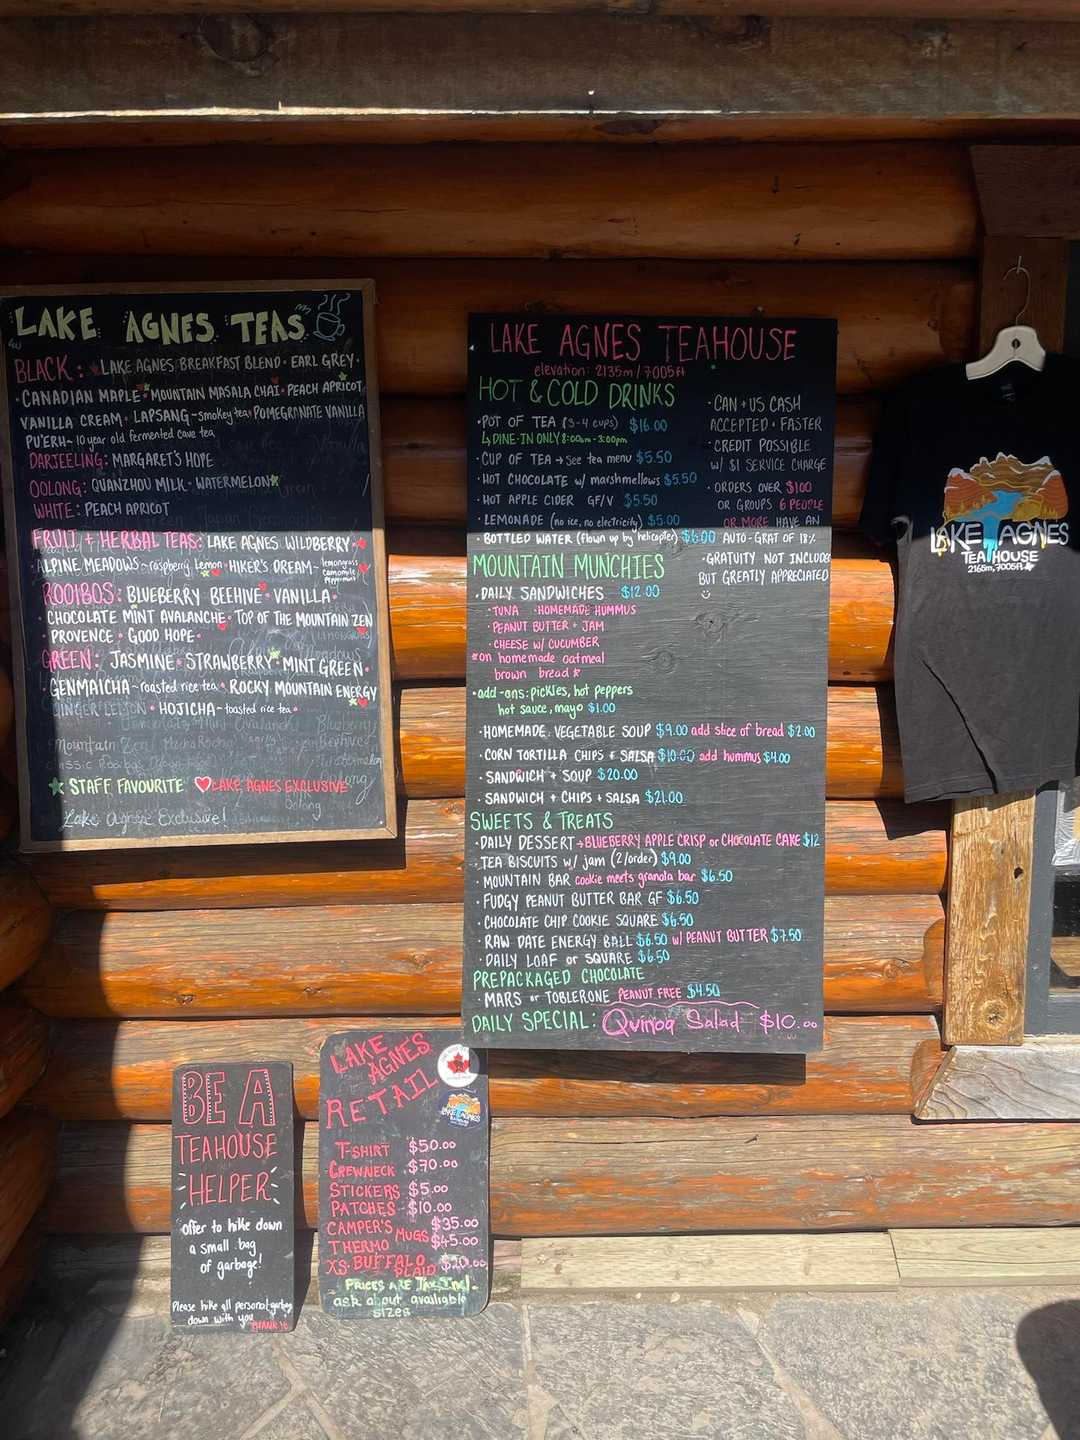 LAKE AGNES TEAS
BLACK: LAKE AGNES BREAKFAST BLEND • EARL GREY •
• CANADIAN MAPLE • MOUNTAIN MASALA CHAI • PEACH APRICOT
VANILLA CREAM • LAPSANG ~ smokey tea • POMEGRANATE VANILLA
PU'ERH ~ 10 year old fermented cave tea
DARJEELING: MARGARET'S HOPE
OOLONG: QUANZHOU MILK • WATERMELON
WHITE: PEACH APRICOT
FRUIT + HERBAL TEAS: LAKE AGNES WILDBERRY •
ALPINE MEADOWS ~ raspberry lemon • HIKER'S DREAM ~ lemongrass
camomile
peppermint
ROOIBOS: BLUEBERRY BEEHIVE • VANILLA •
CHOCOLATE MINT AVALANCHE • TOP OF THE MOUNTAIN ZEN
• PROVENCE • GOOD HOPE •
GREEN: JASMINE • STRAWBERRY • MINT GREEN •
GENMAICHA ~ roasted rice tea • ROCKY MOUNTAIN ENERGY
• HOJICHA ~ toasted rice tea •
Mountain Zen
STAFF FAVOURITE LAKE AGNES EXCLUSIVE
Lake Agnes Exclusive!
LAKE AGNES TEAHOUSE
elevation: 2135m / 7005ft
HOT & COLD DRINKS
• POT OF TEA (3-4 CUPS) $16.00
↳ DINE-IN ONLY 8:00am - 3:00pm
• CUP OF TEA → See tea menu $5.50
• HOT CHOCOLATE w/ marshmellows $5.50
• HOT APPLE CIDER GF/V $5.50
• LEMONADE (no ice, no electricity) $5.00
• BOTTLED WATER (flown up by helicopter) $6.00
• CAN + US CASH
ACCEPTED • FASTER
• CREDIT POSSIBLE
W/ $1 SERVICE CHARGE
• ORDERS OVER $100
OR GROUPS 6 PEOPLE
OR MORE HAVE AN
AUTO-GRAT OF 18%
• GRATUITY NOT INCLUDED
BUT GREATLY APPRECIATED
MOUNTAIN MUNCHIES
• DAILY SANDWICHES $12.00
• TUNA • HOMEMADE HUMMUS
• PEANUT BUTTER + JAM
• CHEESE W/ CUCUMBER
*on homemade oatmeal
brown bread*
• add-ons: pickles, hot peppers
hot sauce, mayo $1.00
• HOMEMADE VEGETABLE SOUP $9.00 add slice of bread $2.00
• CORN TORTILLA CHIPS + SALSA $10.00 add hummus $4.00
• SANDWICH + SOUP $20.00
• SANDWICH + CHIPS + SALSA $21.00
SWEETS & TREATS
• DAILY DESSERT → BLUEBERRY APPLE CRISP or CHOCOLATE CAKE $12
• TEA BISCUITS w/ jam (2/order) $9.00
• MOUNTAIN BAR cookie meets granola bar $6.50
• FUDGY PEANUT BUTTER BAR GF $6.50
• CHOCOLATE CHIP COOKIE SQUARE $6.50
• RAW DATE ENERGY BALL $6.50 w/ PEANUT BUTTER $7.50
• DAILY LOAF OR SQUARE $6.50
PREPACKAGED CHOCOLATE
• MARS or TOBLERONE PEANUT FREE $4.50
DAILY SPECIAL: Quinoa Salad $10.00
LAKE AGNES
TEA HOUSE
2165m, 7005ft
BE A
TEAHOUSE
HELPER
Offer to hike down
a small bag
of garbage!
Please hike all personal garbage
down with you
THANK U
LAKE
AGNES
RETAIL
LAKE AGNES
T-SHIRT $50.00
CREWNECK $70.00
STICKERS $5.00
PATCHES $10.00
CAMPER'S MUGS $35.00
THERMO $45.00
XS BUFFALO PLAID $20.00
PRICES ARE TAX Incl.
ask about available
sizes